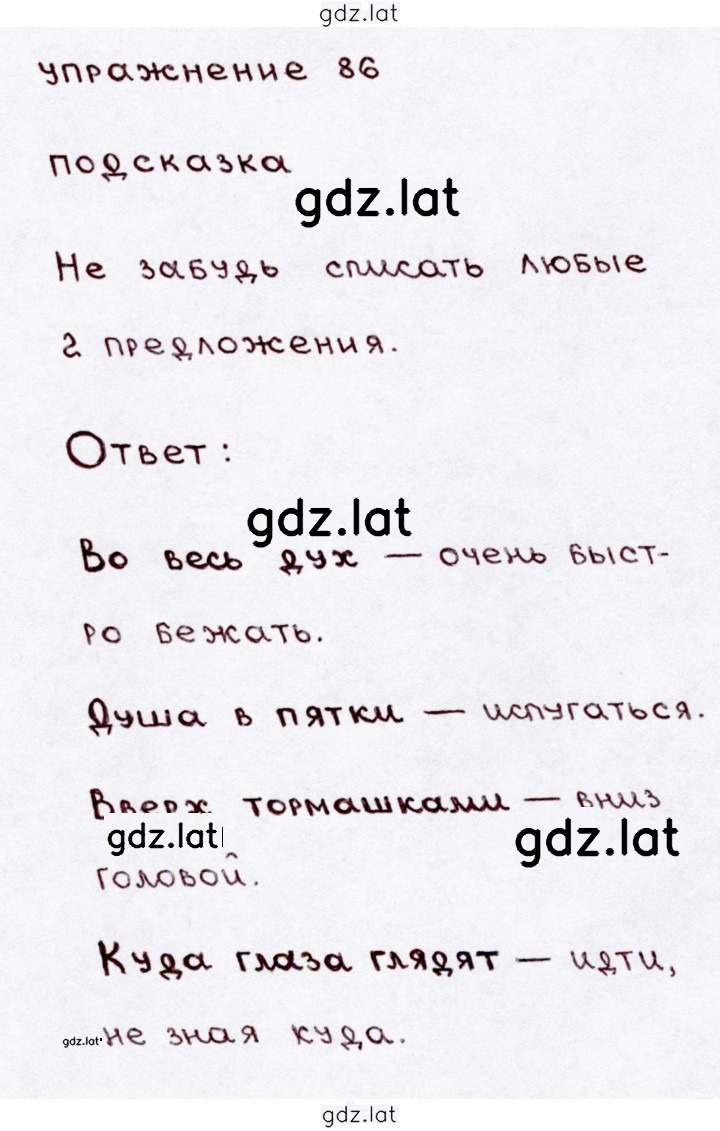 gdz.lat
упражнение 86
подсказка
gdz.lat
Не забудь списать любые
2 предложения.
Ответ:
gdz.lat
Во весь дух — очень быст-
ро бежать.
Душа в пятки — испугаться.
Вверх тормашками — вниз
gdz.lat gdz.lat
головой.
Куда глаза глядят — идти,
gdz.lat не зная куда.
gdz.lat